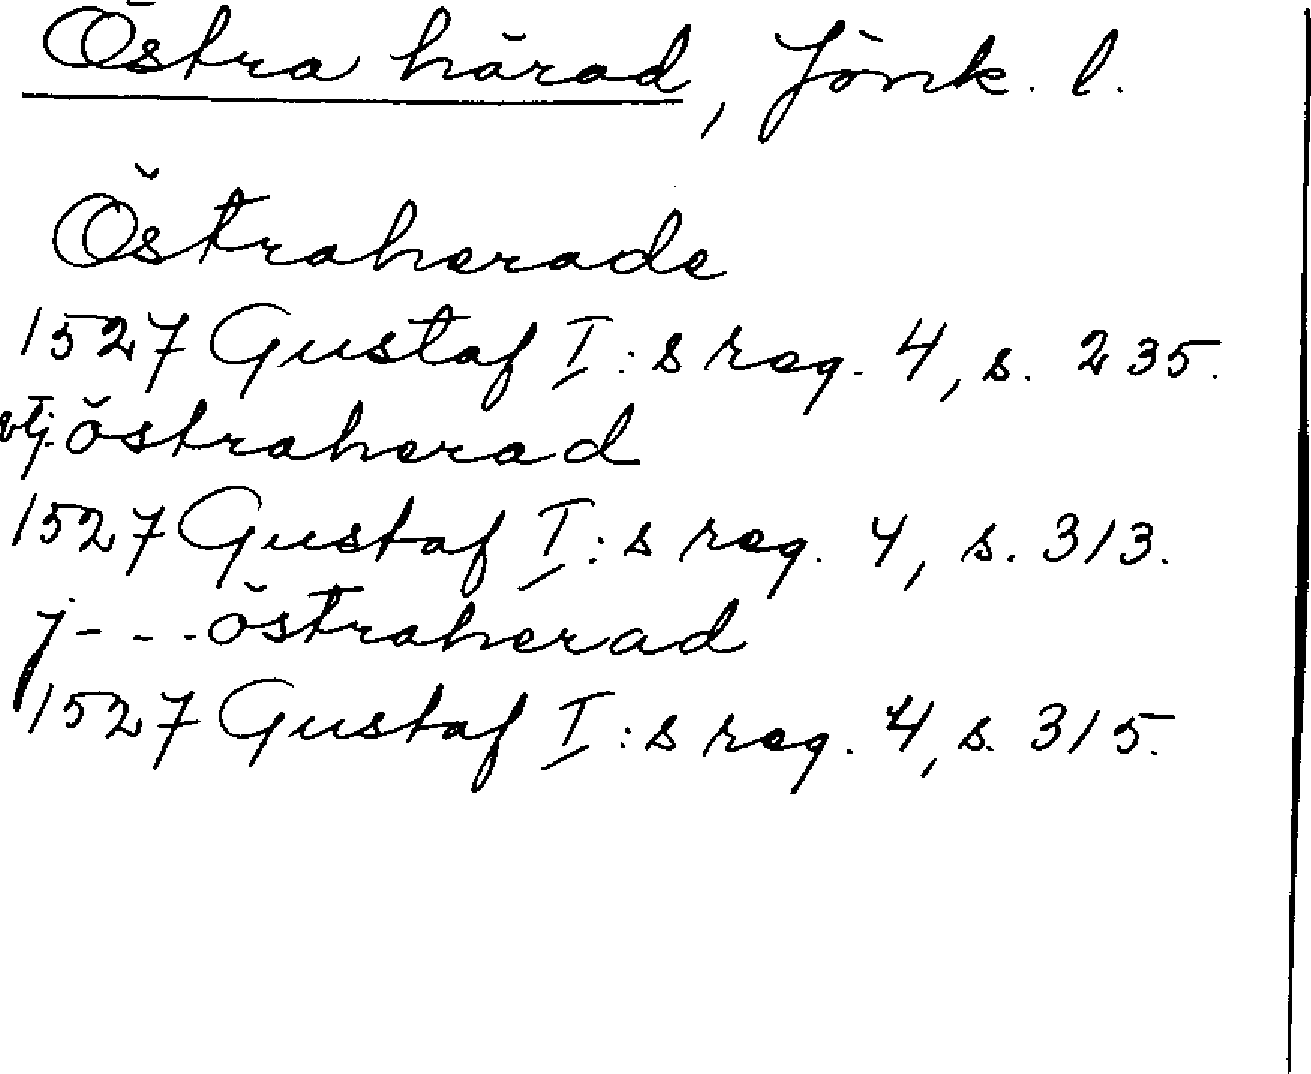 Östra härad, Jönk. l.
Östraherade
1527 Gustaf I:s reg. 4, s. 235.
vtj östraherad
1527 Gustaf I:s reg. 4, s. 313.
j - - - östraherad
1527 Gustaf I:s reg. 4, s. 315.